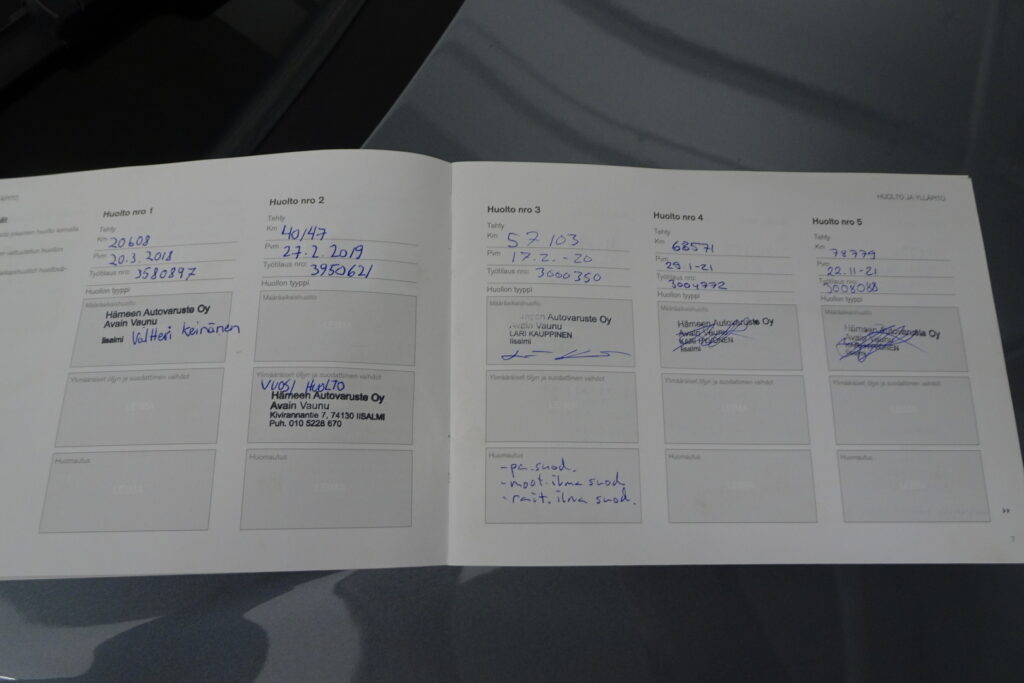 HUOLTO JA YLLÄPITO
Huolto nro 1
Tehty
Km 20608
Pvm 20.3.2018
Työtilaus nro: 3580897
Huollon tyyppi
Määräaikaishuolto
Hämeen Autovaruste Oy
Avain Vaunu
Iisalmi Valtteri Keinänen
Ylimääräiset öljyn ja suodattimen vaihdot
LEIMA
Huomautus
LEIMA
Huolto nro 2
Tehty
Km 40147
Pvm 27.2.2019
Työtilaus nro: 3950621
Huollon tyyppi
Määräaikaishuolto
LEIMA
Ylimääräiset öljyn ja suodattimen vaihdot
VUOSI HUOLTO
Hämeen Autovaruste Oy
Avain Vaunu
Kivirannantie 7, 74130 IISALMI
Puh. 010 5228 670
Huomautus
LEIMA
Huolto nro 3
Tehty
Km 57103
Pvm 17.2.-20
Työtilaus nro: 3000350
Huollon tyyppi
Määräaikaishuolto
Hämeen Autovaruste Oy
Avain Vaunu
LARI KAUPPINEN
Iisalmi
Ylimääräiset öljyn ja suodattimen vaihdot
LEIMA
Huomautus
-pa.suod.
-moot.ilma suod
-rait.ilma suod.
Huolto nro 4
Tehty
Km 68571
Pvm 29.1-21
Työtilaus nro: 3004772
Huollon tyyppi
Määräaikaishuolto
Hämeen Autovaruste Oy
Avain Vaunu
Iisalmi
Ylimääräiset öljyn ja suodattimen vaihdot
LEIMA
Huomautus
LEIMA
Huolto nro 5
Tehty
Km 78779
Pvm 22.11-21
Työtilaus nro: 3008088
Huollon tyyppi
Määräaikaishuolto
Hämeen Autovaruste Oy
Avain Vaunu
Ylimääräiset öljyn ja suodattimen vaihdot
LEIMA
Huomautus
LEIMA
7